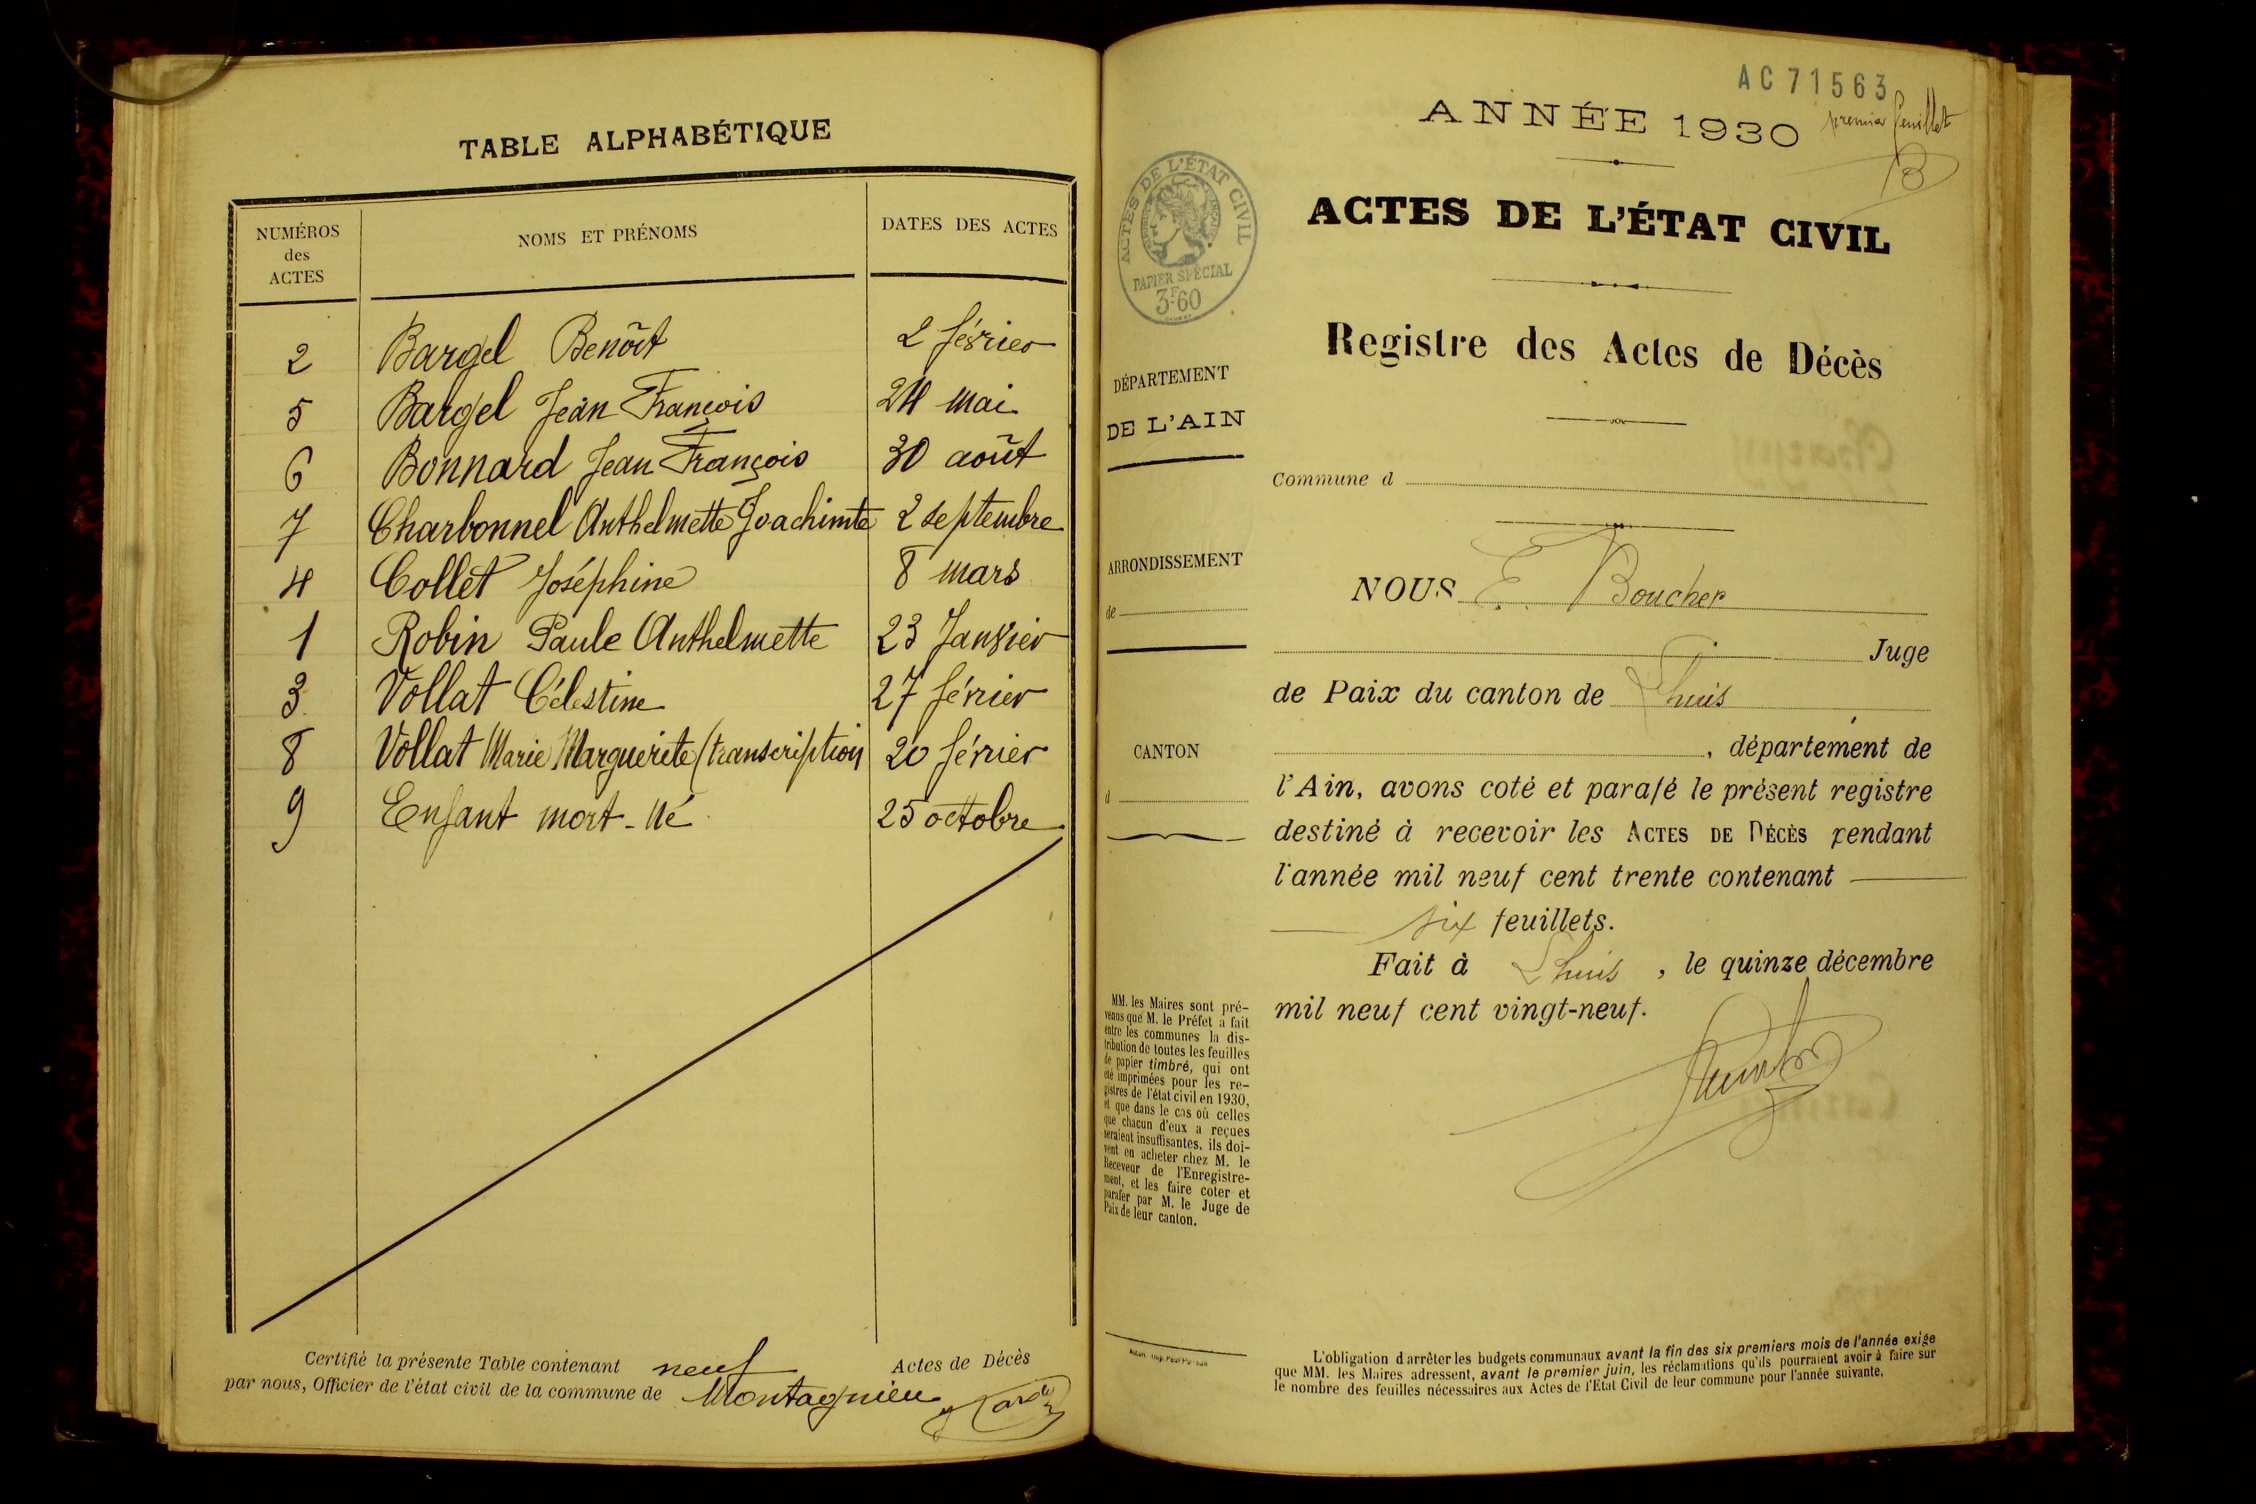 TABLE ALPHABÉTIQUE
NUMÉROS des ACTES NOMS ET PRÉNOMS DATES DES ACTES
2 Bargel Benoît 2 février
5 Bargel Jean François 24 mai
6 Bonnard Jean François 30 août
7 Charbonnel Anthelmette Joachimte 2 septembre
4 Collet Joséphine 8 mars
1 Robin Paule Anthelmette 23 Janvier
3 Vollat Célestine 27 février
8 Vollat Marie Marguerite (transcription 20 février
9 Enfant mort-né 25 octobre
Certifié la présente Table contenant neuf Actes de Décès
par nous, Officier de l'état civil de la commune de Montagnieu
AC 71563
premier feuillet
ANNÉE 1930
ACTES DE L'ÉTAT CIVIL
PAPIER SPÉCIAL
3F60
ACTES DE L'ÉTAT CIVIL
Registre des Actes de Décès
DÉPARTEMENT
DE L'AIN
Commune d
ARRONDISSEMENT
de
CANTON
d
NOUS E. Boucher
Juge
de Paix du canton de Lhuis
, département de
l'Ain, avons coté et parafé le présent registre
destiné à recevoir les ACTES DE DÉCÈS pendant
l'année mil neuf cent trente contenant
six feuillets.
Fait à Lhuis, le quinze décembre
mil neuf cent vingt-neuf.
MM. les Maires sont pré-
venus que M. le Préfet a fait
entre les communes la dis-
tribution de toutes les feuilles
de papier timbré, qui ont
été imprimées pour les re-
gistres de l'état civil en 1930,
et que dans le cas où celles
que chacun d'eux a reçues
seraient insuffisantes, ils doi-
vent en acheter chez M. le
Receveur de l'Enregistre-
ment, et les faire coter et
parafer par M. le Juge de
Paix de leur canton.
L'obligation d'arrêter les budgets communaux avant la fin des six premiers mois de l'année exige
que MM. les Maires adressent, avant le premier juin, les réclamations qu'ils pourraient avoir à faire sur
le nombre des feuilles nécessaires aux Actes de l'Etat Civil de leur commune pour l'année suivante.